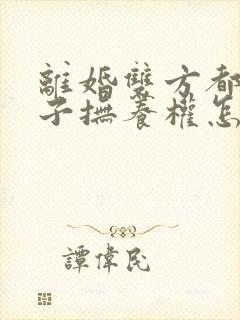 離婚雙方都
子撫養權怎
譚偉民